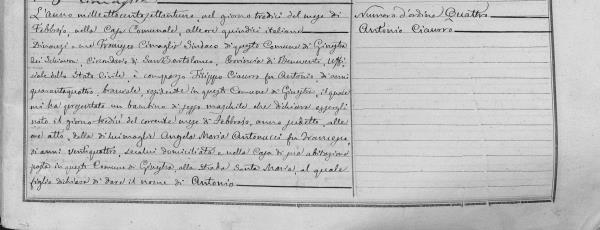 L'Anno milleottocento ottantuno, nel giorno tredici del mese di
Febbrajo, nella Casa Comunale, alle ore quindici italiane
Dinanzi a me Francesco Ciraglio Sindaco di questo Comune di Ginestra
dei Schiavoni, Circondario di San Bartolomeo, Provincia di Benevento, Uffi
ciale dello Stato Civile, è comparso Filippo Ciauro fu Antonio, di anni
quarantaquattro, residente in questo Comune di Ginestra, il quale
mi ha presentato un bambino di sesso maschile che dichiara essergli
nato il giorno tredici del corrente mese di Febbrajo, anno suddetto, alle
ore otto, dalla di lui moglie Angela Maria Antonucci fu
di anni ventiquattro, secolui domiciliata e nella Casa di sua abitazione
posta in questo Comune di Ginestra, alla Strada Santa Maria, al quale
figlio dichiara di dare il nome di Antonio
Numero d'ordine Quattro
Antonio Ciauro